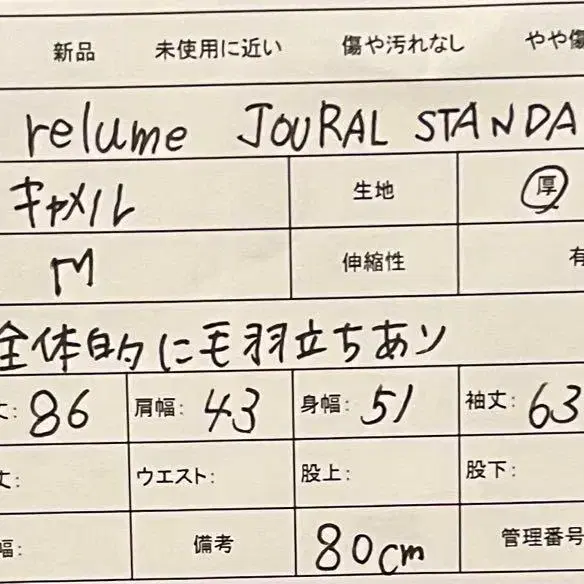 新品 未使用に近い 傷や汚れなし やや傷
relume JOURAL STANDA
キャメル 生地 厚
M 伸縮性 有
全体的に毛羽立ちあり
丈: 86 肩幅: 43 身幅: 51 袖丈: 63
丈: ウエスト: 股上: 股下:
幅: 備考 80cm 管理番号